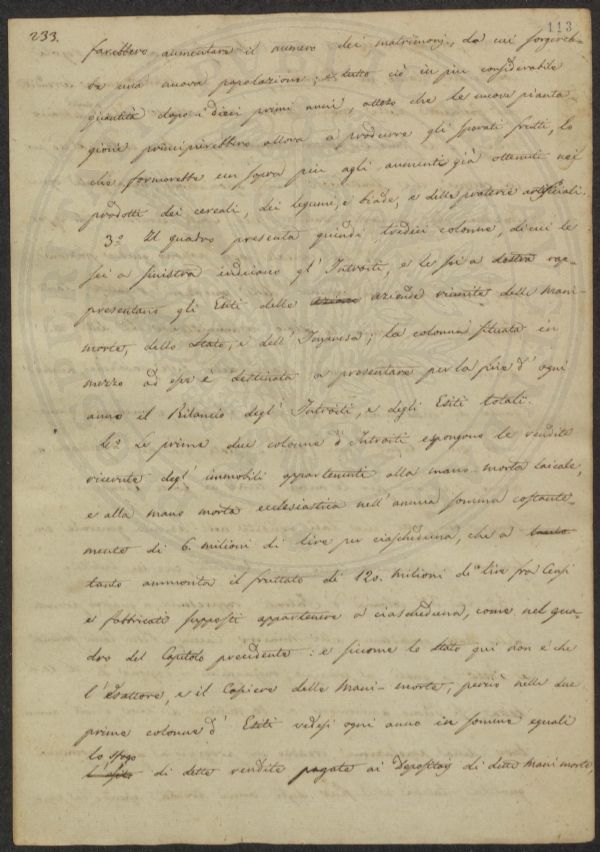 233.
113
farebbero aumentare il numero dei matrimonj, da cui sorgereb-
be una nuova popolazione; e tutto ciò in più considerabile
quantità dopo i dieci primi anni, attoso che le nuove pianta-
gioni principierebbero allora a produrre gli sperati frutti, lo
che formerebbe un sopra più agli aumenti già ottenuti nei
prodotti dei cereali, dei legumi, e biade, e delle praterie artificiali.
3.º Il quadro presenta quindi tredici colonne, di cui le
sei a sinistra indicano gl' Introiti, e le sei a destra rap-
presentano gli Esiti delle aziende riunite delle Mani-
morte, dello Stato, e dell' Impresa; la colonna situata in
mezzo ad esse è destinata a presentare per la fine d' ogni
anno il Bilancio degl' Introiti, e degli Esiti totali.
4.º Le prime due colonne d' Introiti espongono le rendite
ricevute degl' immobili appartenenti alla mano morta laicale,
e alla mano morta ecclesiastica nell' annua somma costante-
mente di 6. milioni di lire per ciascheduna, che a tanto
tanto ammonta il fruttato di 120. milioni di lire fra Censi
e fabbricati supposti appartenere a ciascheduna, come nel qua-
dro del Capitolo precedente: e siccome lo Stato qui non è che
l' Esattore, e il Cassiere delle Mani-morte, perciò nelle due
prime colonne d' Esiti vedesi ogni anno in somme eguali
lo sfogo
di dette rendite pagate ai Depositarj di dette Mani morte,